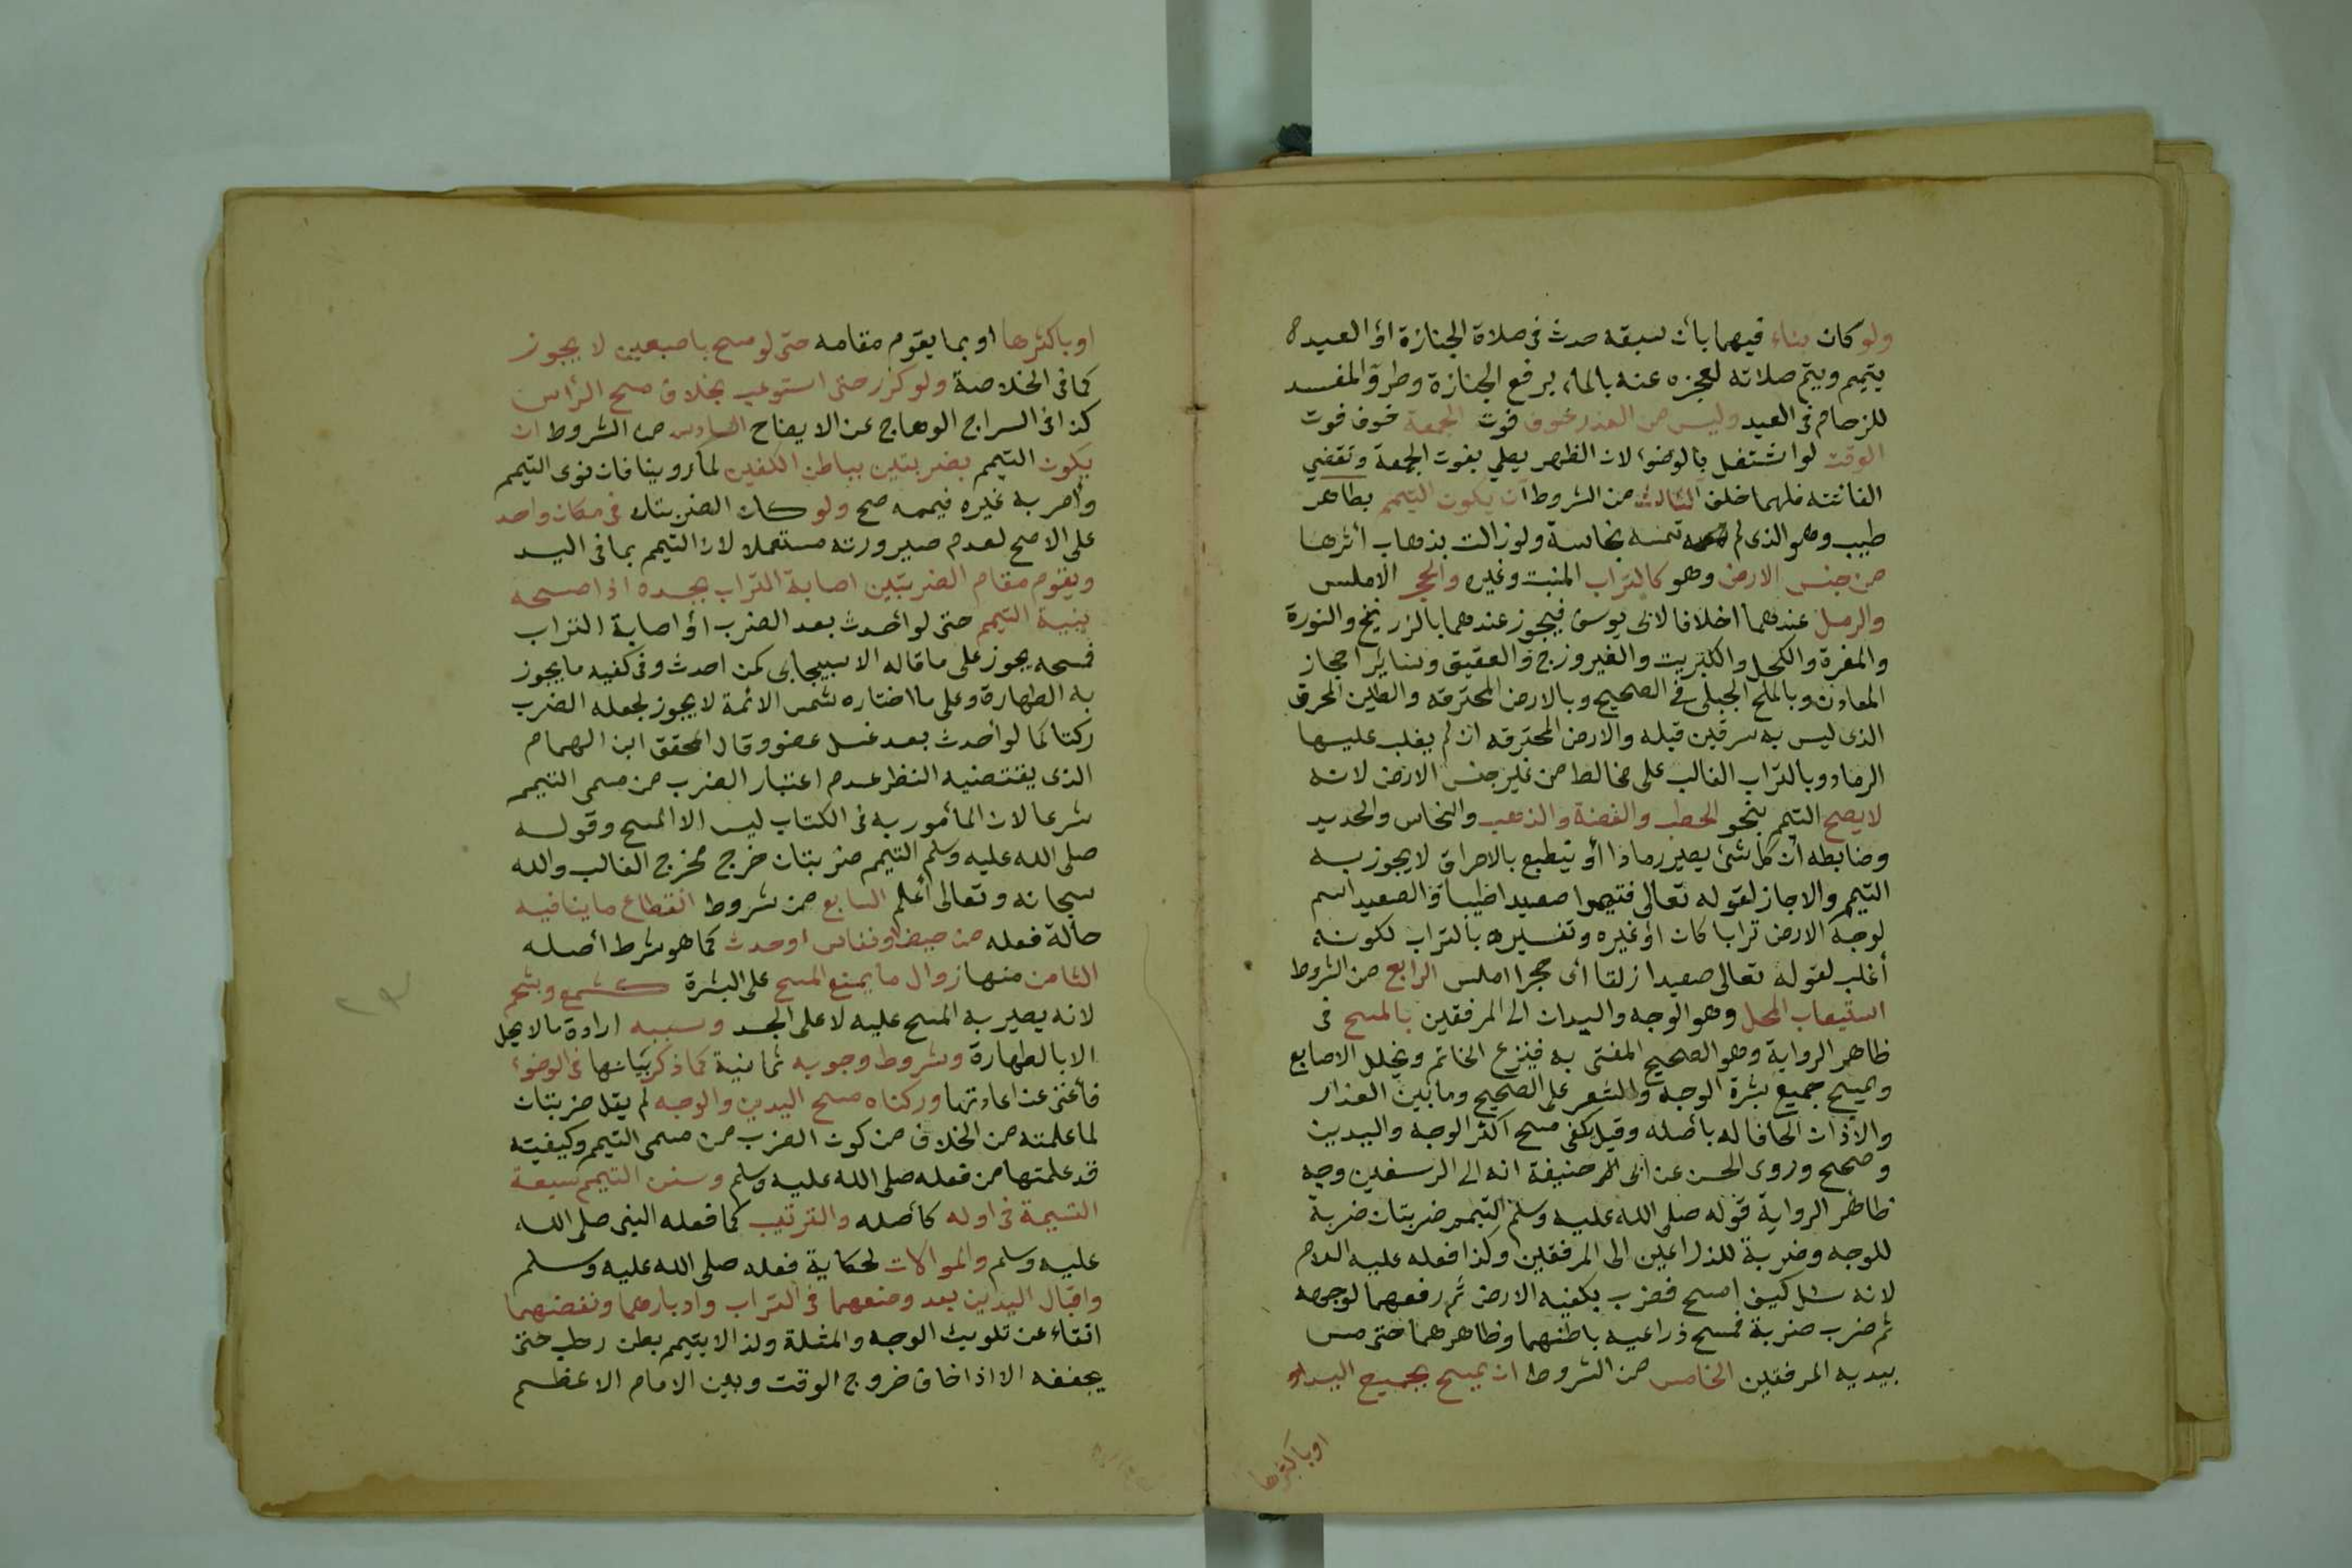 ولو كان بناء فيهما بأن سبقه حدث في صلاة الجنازة او العيد
يتيمم ويتم صلاته لعجزه عنه بالماء برفع الجنازة وطرو المفسد
للزحام في العيد وليس من العذر خوف فوت الجمعة خوف فوت
الوقت لو اشتغل بالوضوء لان الظهر يصلي بفوت الجمعة وتقضي
الفائتة فلهما خلف الثالث من الشروط ان يكون التيمم بطاهر
طيب وهو الذي لم تمسه نجاسة ولو زالت بذهاب أثرها
من جنس الارض وهو كالتراب المنبت وغيره والحجر الاملس
والرمل عندهما خلافا لابي يوسف فيجوز عندهما بالزرنيخ والنورة
والمغرة والكحل والكبريت والفيروزج والعقيق وسائر احجار
المعادن وبالملح الجبلي في الصحيح وبالارض المحترقه والطين المحرق
الذي ليس به سرقين قبله والارض المحترقه ان لم يغلب عليها
الرماد وبالتراب الغالب على مخالط من غير جنس الارض لانه
لا يصح التيمم بنحو الحطب والفضة والذهب والنحاس والحديد
وضابطه أن كل شئ يصير رمادا أو ينطبع بالاحراق لا يجوز به
التيمم والا جاز لقوله تعالى فتيمموا صعيدا طيبا والصعيد اسم
لوجه الارض ترابا كان او غيره وتفسيره بالتراب لكونه
أغلب لقوله تعالى صعيدا زلقا اى حجرا املس الرابع من الشروط
استيعاب المحل وهو الوجه واليدان الى المرفقين بالمسح في
ظاهر الرواية وهو الصحيح المفتى به فينزع الخاتم ويخلل الاصابع
ويمسح جميع بشرة الوجه والشعر على الصحيح وما بين العذار
والأذان الحاقا له بأصله وقيل يكفى مسح اكثر الوجه واليدين
وصحح وروى الحسن عن أبى حنيفة انه الى الرسغين وجه
ظاهر الرواية قوله صلى الله عليه وسلم التيمم ضربتان ضربة
للوجه وضربة للذراعين الى المرفقين وكذا فعله عليه السلام
لانه سئل كيف امسح فضرب بكفيه الارض ثم رفعهما لوجهه
ثم ضرب ضربة فمسح ذراعيه باطنهما وظاهرهما حتى مس
بيديه المرفقين الخامس من الشروط ان يمسح بجميع اليد او
اوباكثرها
اوباكثرها او بما يقوم مقامه حتى لو مسح باصبعين لا يجوز
كما في الخلاصة ولو كرر حتى استوعب بخلاف مسح الرأس
كذا في السراج الوهاج عن الايضاح السادس من الشروط ان
يكون التيمم بضربتين بباطن الكفين لما روينا فان نوى التيمم
وأمر به غيره فيممه صح ولو كان الضربتان في مكان واحد
على الاصح لعدم صيرورته مستعملا لان التيمم بما في اليد
ويقوم مقام الضربتين اصابة التراب بجسده اذا مسحه
بنية التيمم حتى لو أحدث بعد الضرب او اصابة التراب
فمسحه يجوز على ما قاله الاسبيجابي كمن احدث وفي كفيه ما يجوز
به الطهارة وعلى ما اختاره شمس الائمة لا يجوز لجعله الضرب
ركنا كما لو أحدث بعد غسل عضو وقال المحقق ابن الهمام
الذي يقتضيه النظر عدم اعتبار الضرب من مسمى التيمم
شرعا لان المأمور به في الكتاب ليس الا المسح وقوله
صلى الله عليه وسلم التيمم ضربتان خرج مخرج الغالب والله
سبحانه وتعالى أعلم السابع من شروط انقطاع ما ينافيه
حالة فعله من حيض او نفاس او حدث كما هو شرط أصله
الثامن منها زوال ما يمنع المسح على البشرة كشمع وشحم
لانه يصير به المسح عليه لا على الجسد وسببه ارادة ما لا يحل
الا بالطهارة وشروط وجوبه ثمانية كما ذكر بيانها في الوضوء
فأغنى عن اعادتها وركناه مسح اليدين والوجه لم يقل ضربتان
لما علمته من الخلاف من كون الضرب من مسمى التيمم وكيفيته
قد علمتها من فعله صلى الله عليه وسلم وسنن التيمم سبعة
التسمية في اوله كأصله والترتيب كما فعله النبى صلى الله
عليه وسلم والموالات لحكاية فعله صلى الله عليه وسلم
واقبال اليدين بعد وضعهما في التراب وادبارهما ونفضهما
اتقاء عن تلويث الوجه والمثلة ولذا لا يتيمم بطين رطب حتى
يجففه الا اذا خاف خروج الوقت وبين الامام الاعظم